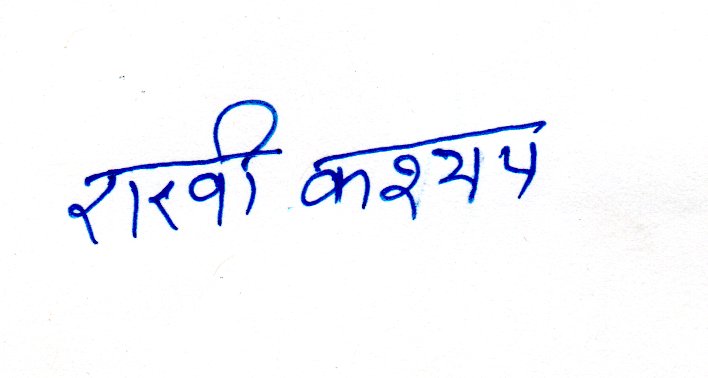 राखी कश्यप